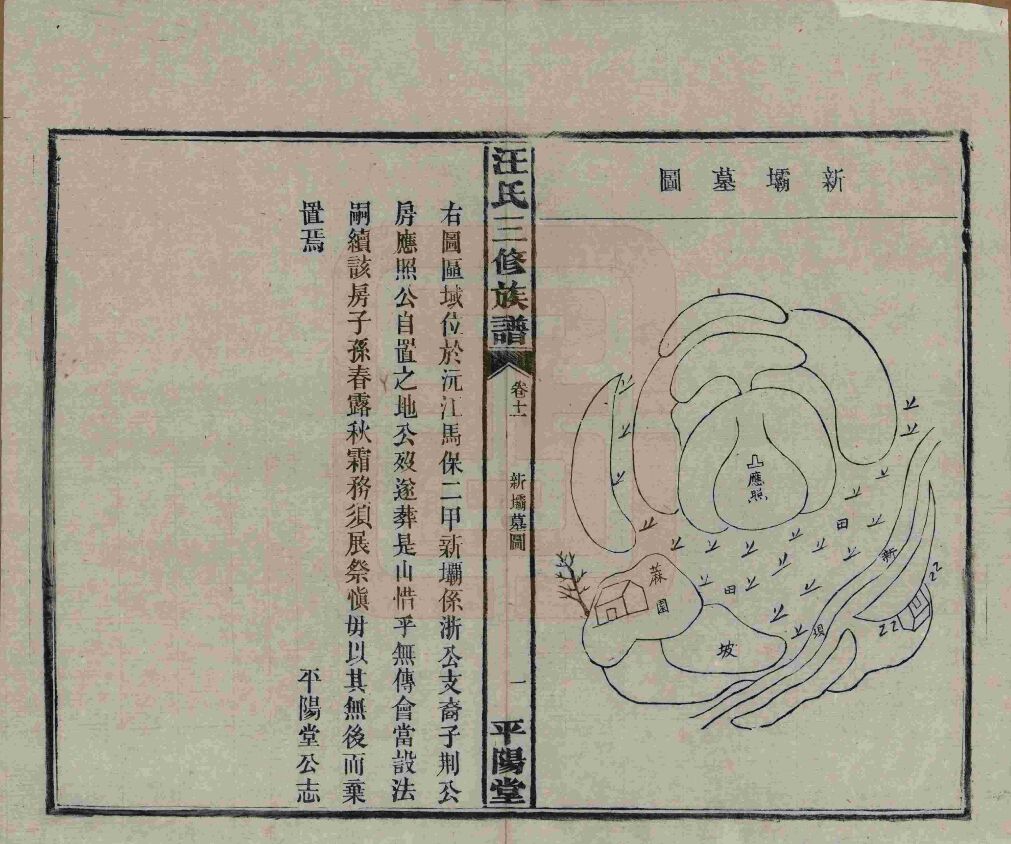 新壩墓圖
應照
田
田
新
壩
蔴園
坡
汪氏三修族譜
卷十一
新壩墓圖
一
平陽堂
右圖區域位於沅江馬保二甲新壩係浙公支裔子荆公
房應照公自置之地公歿遂葬是山惜乎無傳會當設法
嗣續該房子孫春露秋霜務須展祭愼毋以其無後而棄
置焉
平陽堂公志